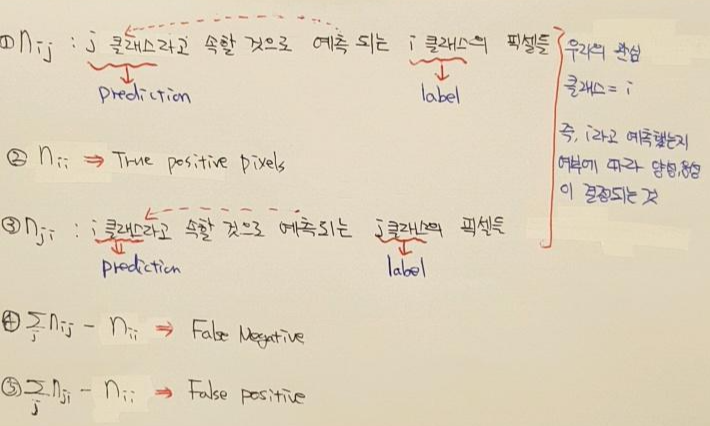 ① nij : j 클래스라고 속할 것으로 예측 되는 i 클래스의 픽셀들
prediction label
② nii ⇒ True positive pixels
③ nji : i 클래스라고 속할 것으로 예측되는 j클래스의 픽셀들
prediction label
④ ∑j nij - nii ⇒ False Negative
⑤ ∑j nji - nii ⇒ False positive
우리의 관심
클래스 = i
즉, i라고 예측했는지
여부에 따라 양성,음성
이 결정되는 것